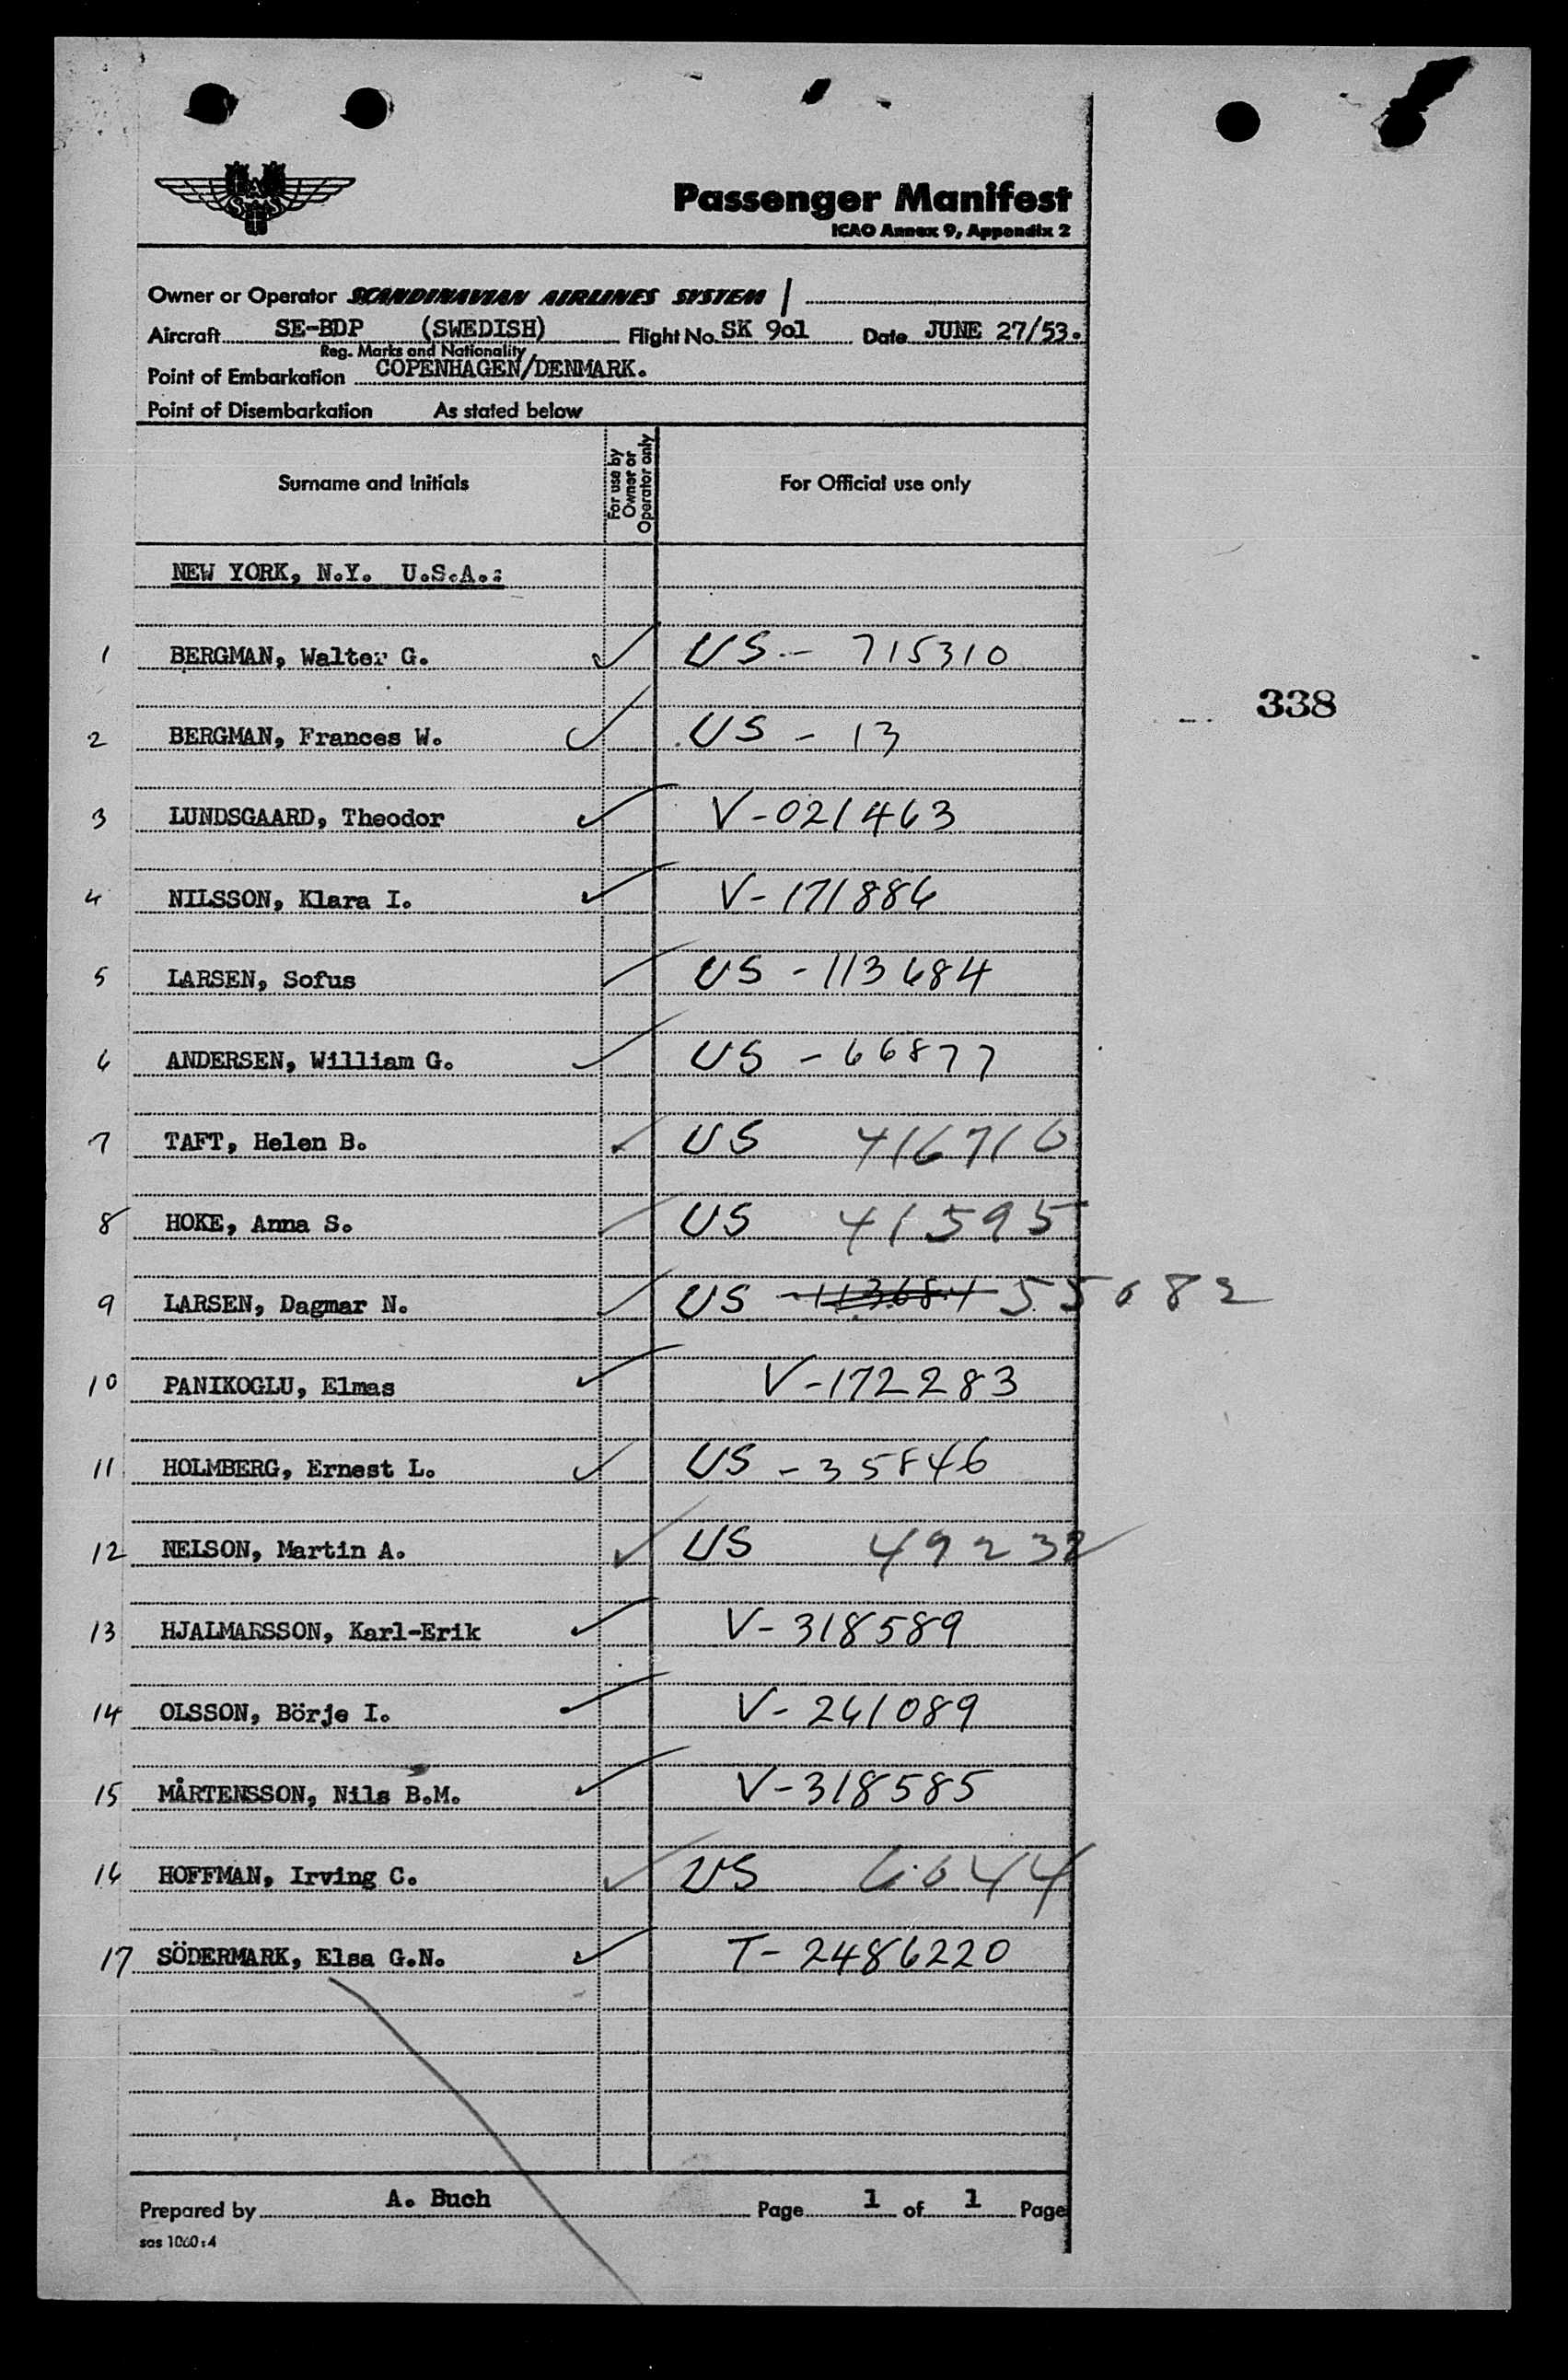 SAS
Passenger Manifest
ICAO Annex 9, Appendix 2
Owner or Operator SCANDINAVIAN AIRLINES SYSTEM /
Aircraft SE-BDP (SWEDISH) Flight No. SK 9o1 Date JUNE 27/53.
Reg. Marks and Nationality
Point of Embarkation COPENHAGEN/DENMARK.
Point of Disembarkation As stated below
Surname and Initials For use by Owner or Operator only For Official use only
NEW YORK, N.Y. U.S.A.:
1 BERGMAN, Walter G. ✓ US - 715310
338
2 BERGMAN, Frances W. ✓ US - 13
3 LUNDSGAARD, Theodor ✓ V-021463
4 NILSSON, Klara I. ✓ V-171886
5 LARSEN, Sofus ✓ US - 113684
6 ANDERSEN, William G. ✓ US - 66877
7 TAFT, Helen B. ✓ US 416716
8 HOKE, Anna S. ✓ US 41595
9 LARSEN, Dagmar N. ✓ US -113684 55682
10 PANIKOGLU, Elmas ✓ V-172283
11 HOLMBERG, Ernest L. ✓ US - 35846
12 NELSON, Martin A. ✓ US 49232
13 HJALMARSSON, Karl-Erik ✓ V-318589
14 OLSSON, Börje I. ✓ V-261089
15 MÅRTENSSON, Nils B.M. ✓ V-318585
16 HOFFMAN, Irving C. ✓ US 6644
17 SÖDERMARK, Elsa G.N. ✓ T-2486220
Prepared by A. Buch Page 1 of 1 Page
sas 1060:4